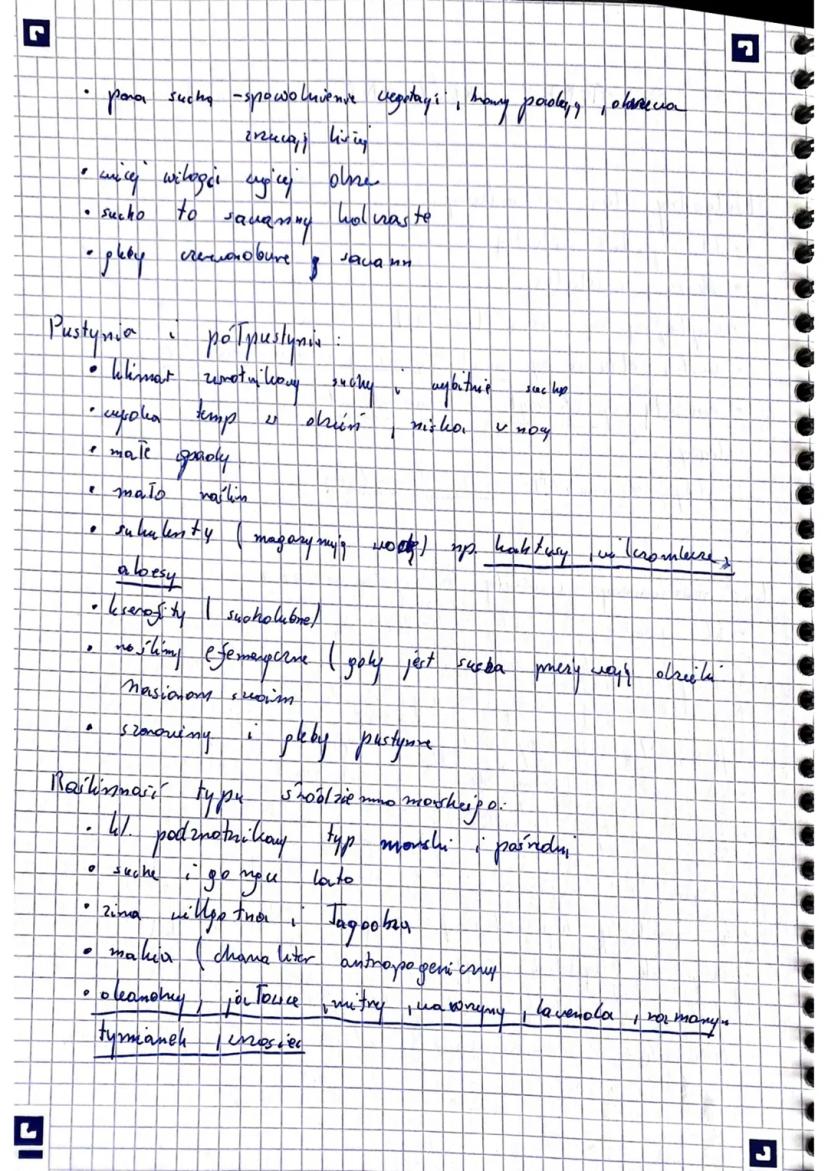 • pora sucha - spowolnienie wegetacji, trawy padają, drzewa
zrzucają liście
• więcej wilgoci więcej drzew
• sucho to sawanny kolczaste
• gleby czerwonobure sawann
Pustynia i półpustynia:
• klimat zwrotnikowy suchy i wybitnie suchy
• wysoka temp w dzień, niska w nocy
• małe opady
• mało roślin
• sukulenty (magazynują wodę) np. kaktusy, wilczomlecze,
aloesy
• kserofity (sucholubne)
• rośliny efemeryczne (gdy jest susza przeżywają dzięki
nasionom swoim
• szaroziemy i gleby pustynne
Roślinność typu śródziemnomorskiego:
• kl. podzwrotnikowy typ morski i pośredni
• suche i gorące lato
• zima wilgotna i łagodna
• makia (charakter antropogeniczny
• oleandry, jałowce, mirty, wawrzyny, lavenda, rozmaryn
tymianek, wrzosiec